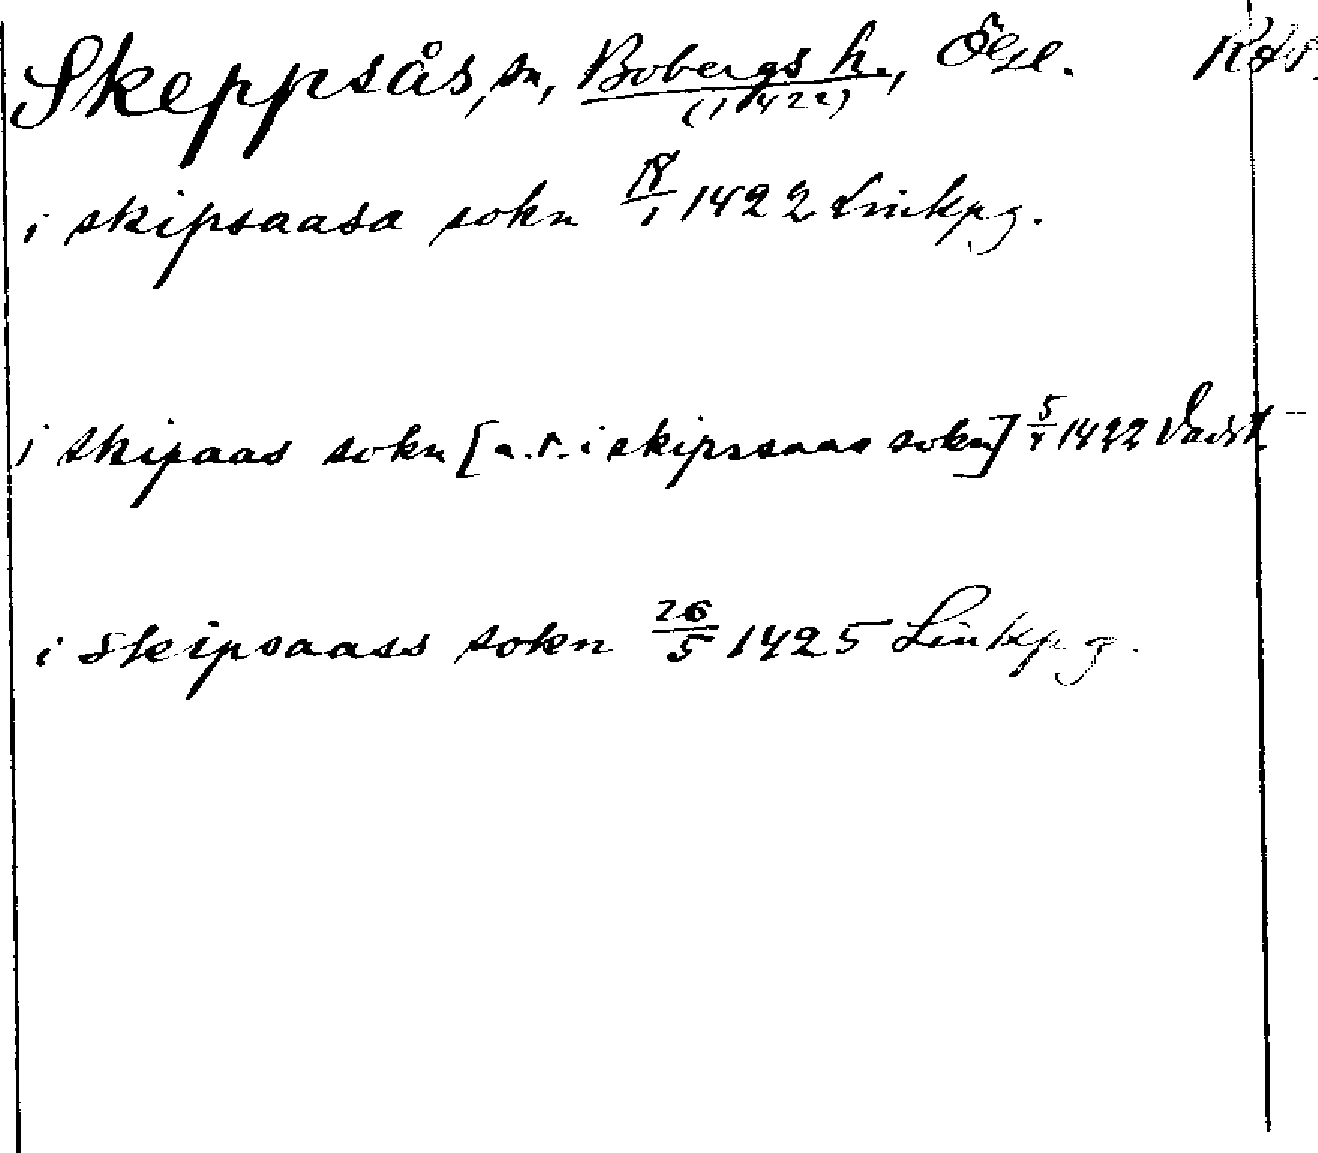 Skeppsås, sn, Bobergs h., Ögl.
(1422)
i skipsaasa sokn 18/1 1422 Linkpg.
i skipaas sokn [a.r. i skipssaas sokn] 5/2 1422 Vadst.
i Skipsaass sokn 26/5 1425 Linkpg.